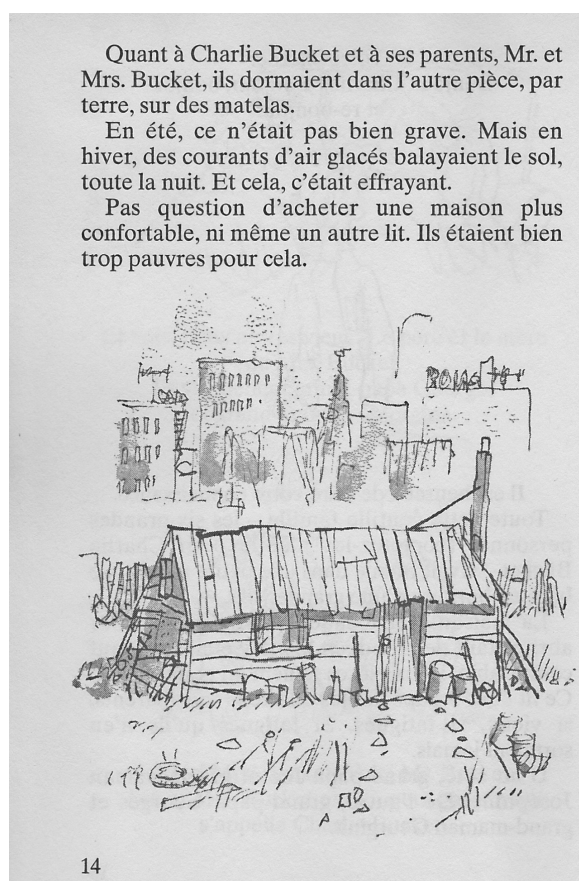 Quant à Charlie Bucket et à ses parents, Mr. et
Mrs. Bucket, ils dormaient dans l’autre pièce, par
terre, sur des matelas.
En été, ce n’était pas bien grave. Mais en
hiver, des courants d’air glacés balayaient le sol,
toute la nuit. Et cela, c’était effrayant.
Pas question d’acheter une maison plus
confortable, ni même un autre lit. Ils étaient bien
trop pauvres pour cela.
14